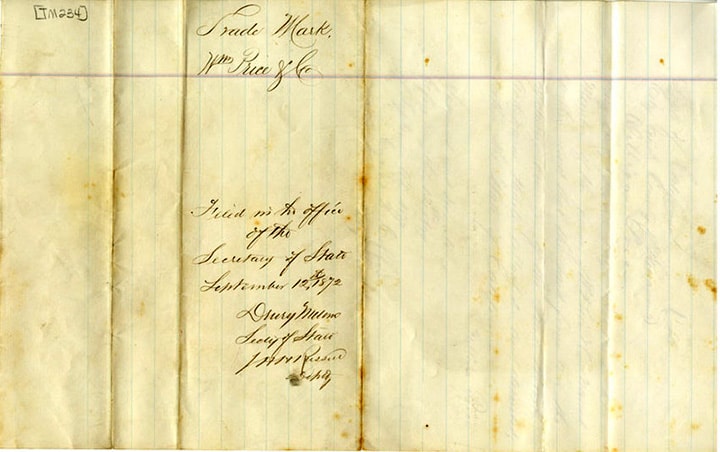 [TM234]
Trade Mark.
Wm Price & Co
Filed in the office
of the
Secretary of State
September 12th, 1872
Drury Melone
Secty of State
Deputy